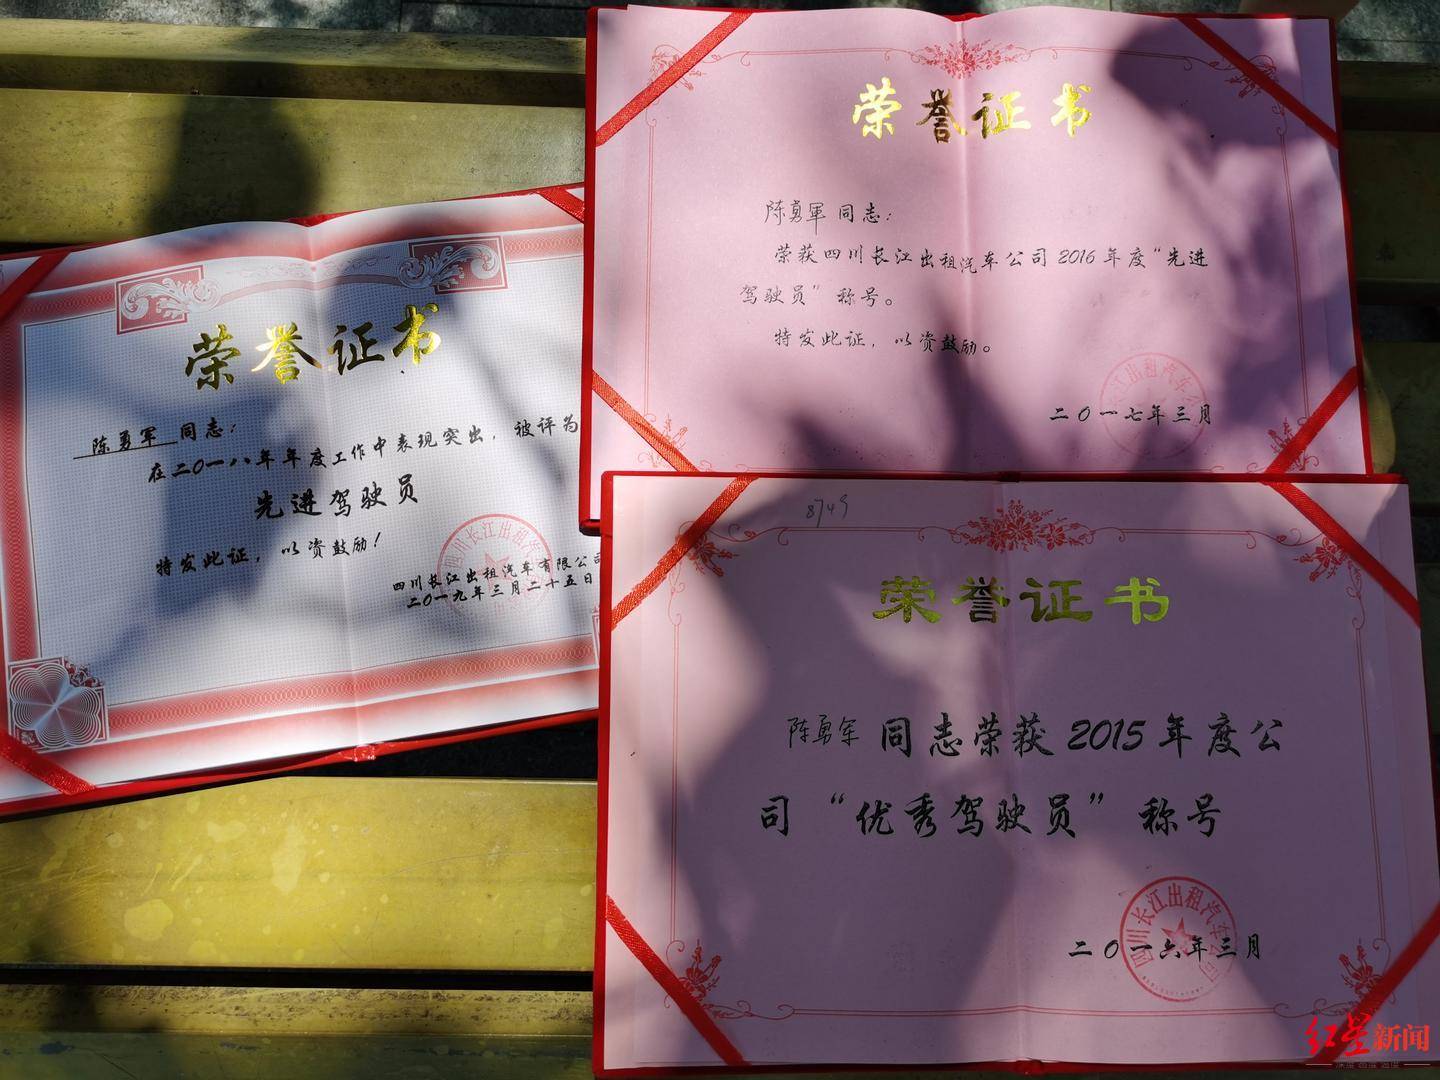 荣誉证书
陈勇军 同志：
荣获四川长江出租汽车公司2016年度“先进
驾驶员”称号。
特发此证，以资鼓励。
二〇一七年三月
荣誉证书
陈勇军 同志：
在二〇一八年年度工作中表现突出，被评为
先进驾驶员
特发此证，以资鼓励！
四川长江出租汽车有限公司
二〇一九年三月二十五日
8749
荣誉证书
陈勇军 同志荣获 2015 年度公
司 “优秀驾驶员” 称号
四川长江出租汽车公司
二〇一六年三月
红星新闻